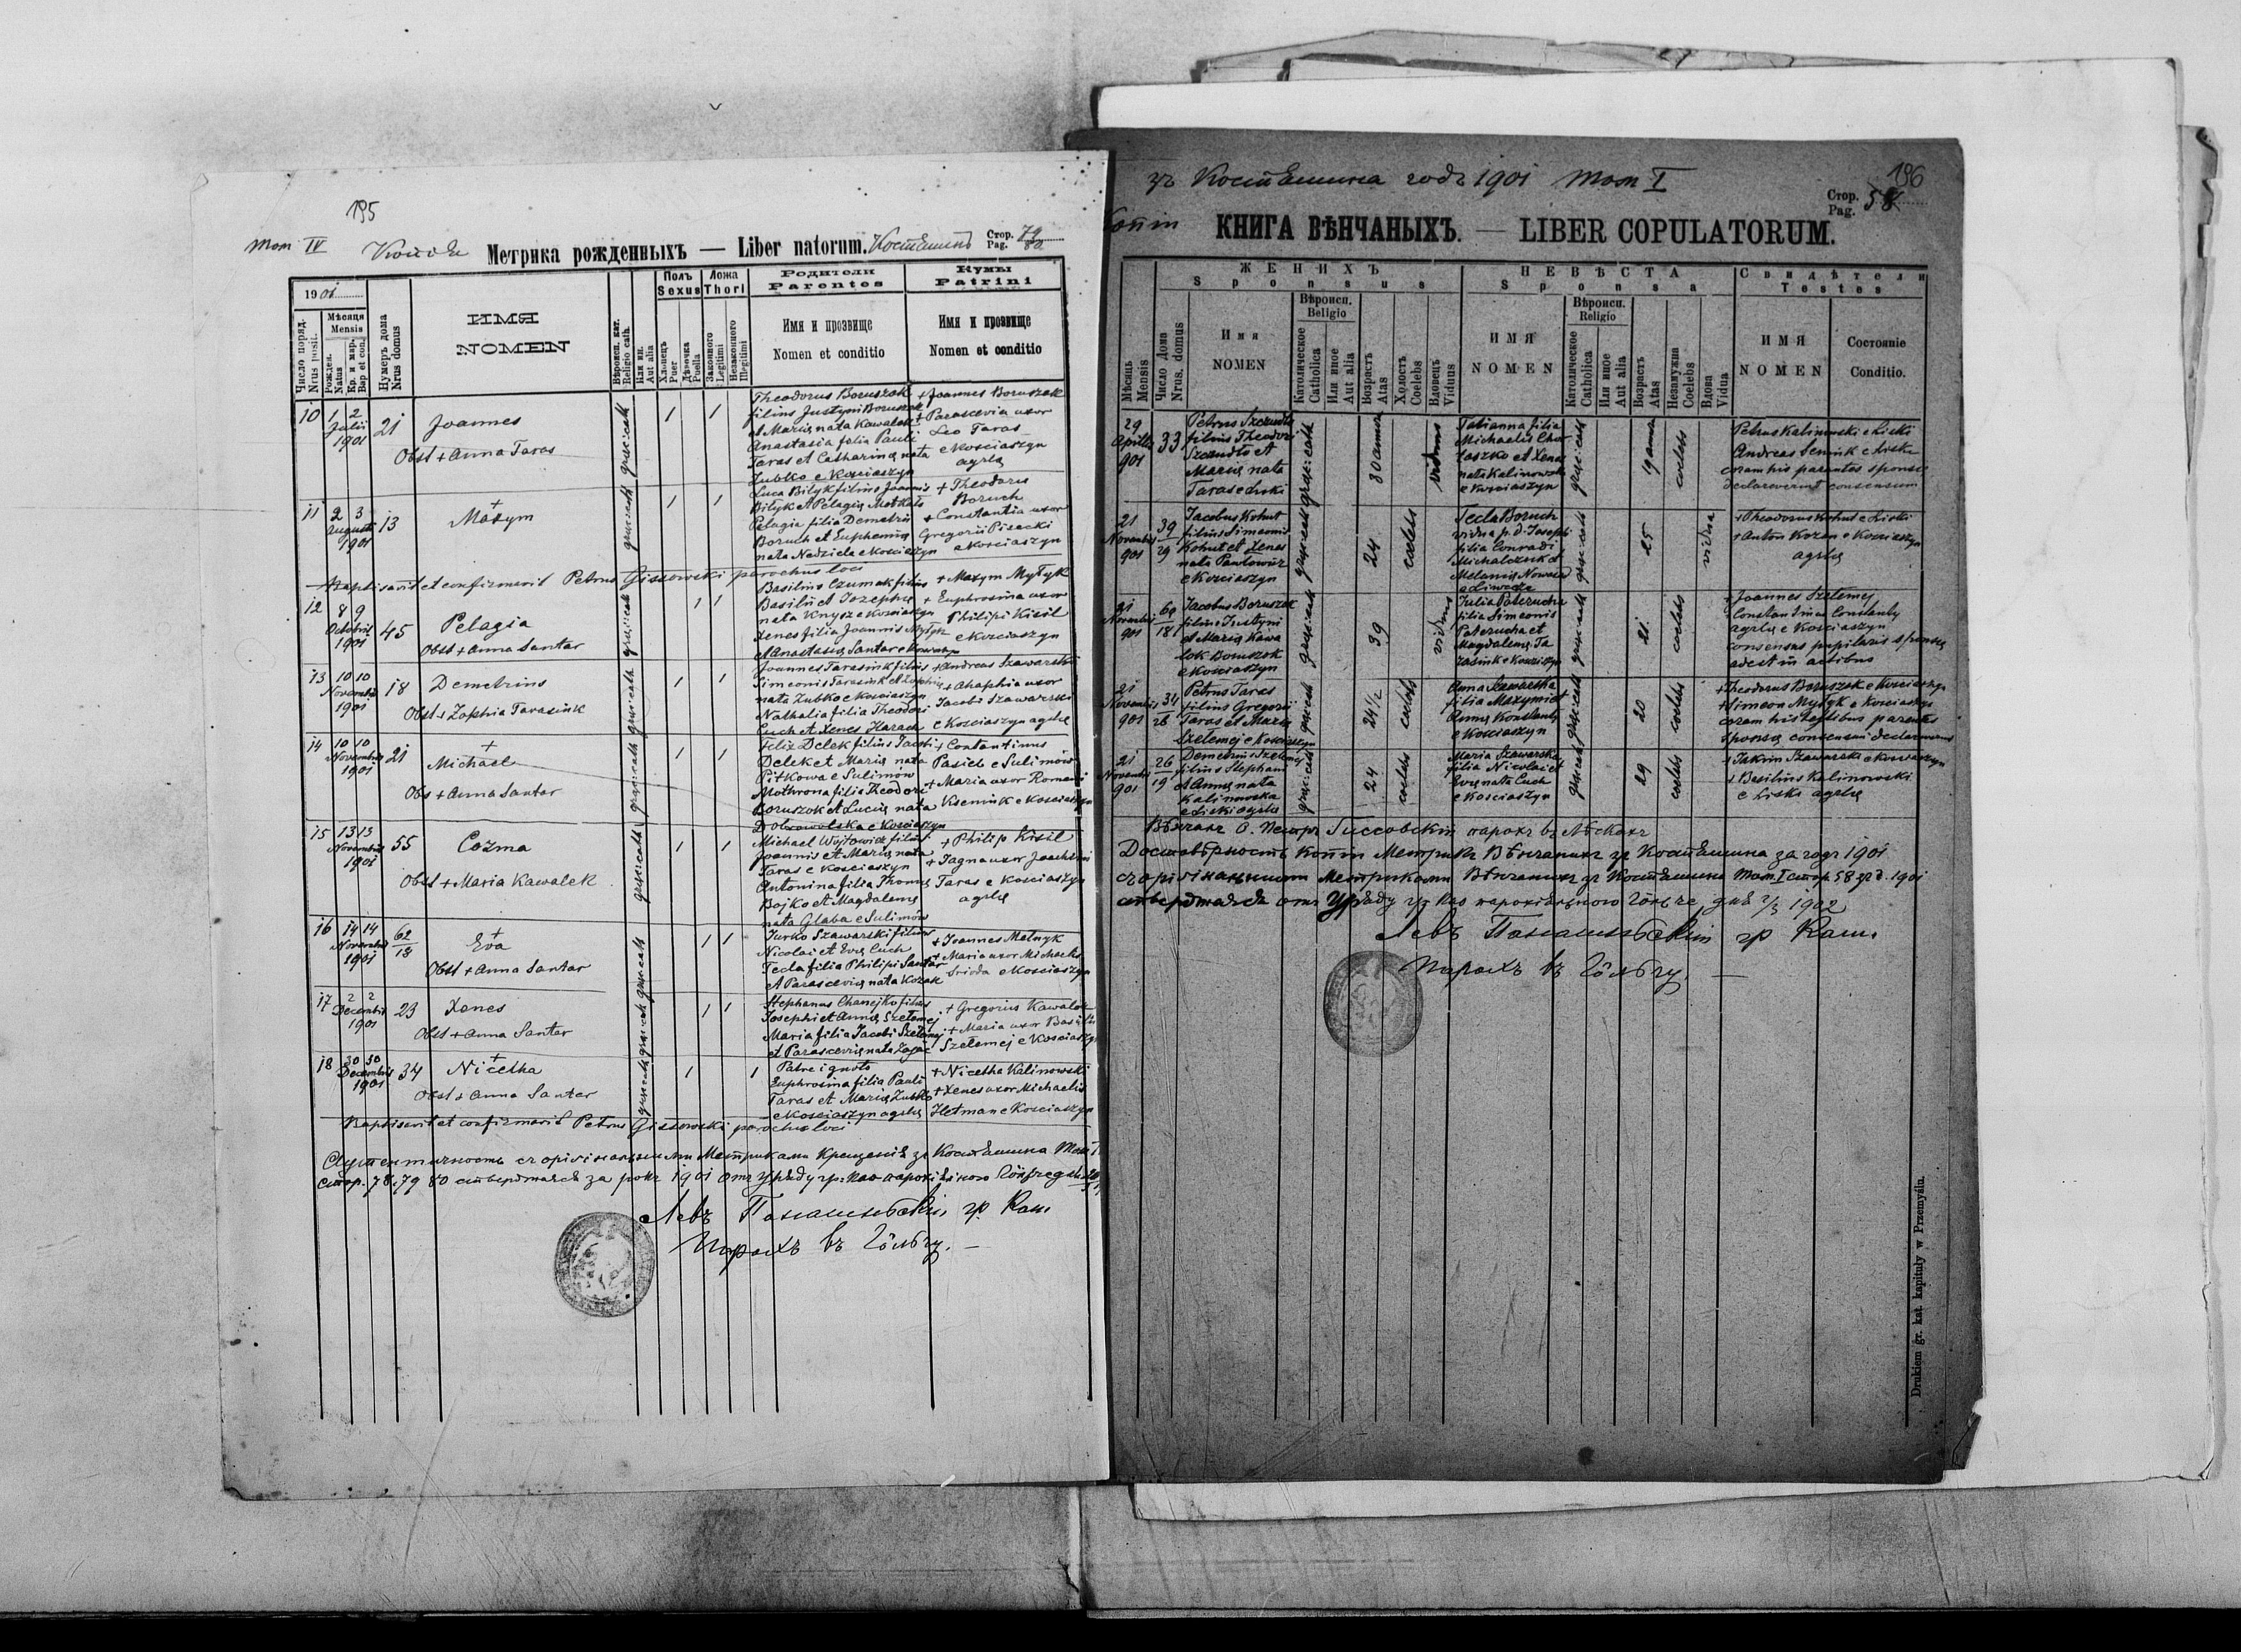 195
Tom IV
Метрика рожденныхъ — Liber natorum.
Стор.
Pag.
79
80
1901
Число поряд.
Nrus posit.
Мѣсяця
Mensis
Рожден.
Natus
Кр. и мир.
Bap et con.
Нумеръ дома
Nrus domus
ИМЯ
NOMEN
Вѣроисп. кат.
Religio cath.
Или ин.
Aut alia
Полъ
Sexus
Хлопецъ
Puer
Дѣвочка
Puella
Ложа
Thori
Законного
Legitimi
Незаконного
Illegitimi
Родители
Parentes
Имя и прозвище
Nomen et conditio
Кумы
Patrini
Имя и прозвище
Nomen et conditio
10
1 2
Julii
1901
21
Joannes
Obst + Anna Taras
graec: cath
1 1
Theodorus Boruszok
filius Justyni Boruszok
et Marię nata Kawalok
Anastasia filia Pauli
Taras et Catharinę nata
Zubko e Kosciaszyn
+ Joannes Boruszok
+ Parascevia uxor
Leo Taras
e Kosciaszyn
agrlę
11
2 3
Augusti
1901
13
+
Maxym
graec: cath
1 1
Luca Bilyk filius Joannis
Bilyk et Pelagię
Pelagia filia Demetrii
Boruch et Euphemię
nata Nedziela e Kosciaszyn
+ Theodorus
Boruch
+ Constantia uxor
Gregorii Pisecki
e Kosciaszyn
Baptisavit et confirmavit Petrus Gissowski parochus loci
12
8 9
Octobris
1901
45
Pelagia
Obst + Anna Santar
graec: cath
1 1
Basilius Czumak filius
Basilii et Josephę
nata Knysz e Kosciaszyn
Xenes filia Joannis Mytyk
et Anastasię Santar e Kosciaszyn
+ Maxym Mytyk
+ Euphrosina uxor
Philipi Kisil
e Kosciaszyn
13
10 10
Novembris
1901
18
Demetrius
Obst + Zophia Tarasiuk
graec: cath
1 1
Joannes Tarasiuk filius
Simeonis Tarasiuk et Zophię
nata Zubko e Kosciaszyn
Nathalia filia Theodori
Cuch et Xenes Harach
+ Andreas Szawarski
+ Ahaphia uxor
Jacobi Szawarski
e Kosciaszyn agrlę
14
10 10
Novembris
1901
21
+
Michael
Obs + Anna Santar
graec: cath
1 1
Felix Delek filius Jacobi
Delek et Marię nata
Pitkowa e Sulimow
Mothrona filia Theodori
Boruszok et Lucię nata
Dobrowolska e Kosciaszyn
+ Contantinus
Pasich e Sulimow
+ Maria uxor Romani
Kseniuk e Kosciaszyn
15
13 13
Novembris
1901
55
Cozma
Obst + Maria Kawalek
graec: cath
1 1
Michael Wojtowicz filius
Joannis et Marię nata
Taras e Kosciaszyn
Antonina filia Thomę
Bojko et Magdalenę
nata Glaba e Sulimow
+ Philip Kisil
+ Jagna uxor Joachimi
Taras e Kosciaszyn
agrlę
16
14 14
Novembris
1901
62
18
+
Eva
Obst + Anna Santar
graec: cath
1 1
Jurko Szawarski filius
Nicolai et Evę Cuch
Tecla filia Philipi Santar
et Parascevię nata Kozak
+ Joannes Melnyk
+ Maria uxor Michaelis
Sroda e Kosciaszyn
17
2 2
Decembris
1901
23
Xenes
Obst + Anna Santar
graec: cath
1 1
Stephanus Chanejko filius
Josephi et Annę Szełemej
Maria filia Jacobi Szełemej
et Parascevię nata Zajac
+ Gregorius Kawalok
+ Maria uxor Basilii
Szełemej e Kosciaszyn
18
30 30
Decembris
1901
34
+
Nicetha
Obst + Anna Santar
graec: cath
1 1
Patre ignoto
Euphrosina filia Pauli
Taras et Marię Zubko
e Kosciaszyn agrlę
+ Nicetha Kalinowski
+ Xenes uxor Michaelis
Hetman e Kosciaszyn
Baptisavit et confirmavit Petrus Gissowski parochus loci
Левъ
гр. Кат.
Парохъ въ
196
зъ Костѣшина годъ 1901 Том I
Стор.
Pag.
58
Копія
КНИГА ВѢНЧАНЫХЪ. — LIBER COPULATORUM.
Мѣсяць
Mensis
Число Дома
Nrus. domus
ЖЕНИХЪ
Sponsus
Имя
NOMEN
Вѣроисп.
Religio
Католическое
Catholica
Или иное
Aut alia
Возрастъ
Atas
Холостъ
Coelebs
Вдовецъ
Viduus
НЕВѢСТА
Sponsa
ИМЯ
NOMEN
Вѣроисп.
Religio
Католическое
Catholica
Или иное
Aut alia
Возрастъ
Atas
Незамужна
Coelebs
Вдова
Vidua
Свидѣтели
Testes
ИМЯ
NOMEN
Состояніе
Conditio.
29
Aprilis
901
33
Petrus Szczudło
filius Theodori
Szczudło et
Marię nata
Taras e Liski
graec: cath
30 annor
viduus
Tatianna filia
Michaelis Chor
łaszko et Xenes
nata Kalinowska
e Kosciaszyn
graec: cath
19 annor
coelebs
Petrus Kalinowski e Liski
Andreas Seniuk e Liski
coram his parentes sponsę
declaraverunt consensum
21
Novembris
901
39
29
Jacobus Kohut
filius Simeonis
Kohut et Xenes
nata Pawłowicz
e Kosciaszyn
graec: cath
24
coelebs
Tecla Boruch
vidua p. d. Josephi
filia Conradi
Michalczuk et
Melanię
graec: cath
25
vidua
+ Theodorus Kohut e Liski
+ Antoni Kozan e Kosciaszyn
agrlę
21
Novembris
901
60
18
Jacobus Boruszok
filius Justyni
et Marię Kawa
lok Boruszok
e Kosciaszyn
graec: cath
39
viduus
Julia Paterucha
filia Simeonis
Paterucha et
Magdalenę Ta
rasiuk e Kosciaszyn
graec: cath
21
coelebs
+ Joannes Szełemej
Constantinus Constanty
agrlę e Kosciaszyn
consensus pupilaris sponsę
adest in actibus
21
Novembris
901
31
28
Petrus Taras
filius Gregorii
Taras et Marię
Szełemej e Kosciaszyn
graec: cath
24 1/2
coelebs
Anna Szawarska
filia Maxymi et
Annę Konstanty
e Kosciaszyn
graec: cath
20
coelebs
+ Theodorus Boruszok e Kosciaszyn
+ Simeon Mytyk e Kosciaszyn
coram his testibus parentes
sponsę consensum declaraverunt
21
Novembris
901
26
19
Demetrius Szełemej
filius Stephani
et Annę nata
Kalinowska
e Liski agrlę
graec: cath
24
coelebs
Maria Szawarska
filia Nicolai et
Evę nata Cuch
e Kosciaszyn
graec: cath
29
coelebs
+ Jakim Szawarski e Kosciaszyn
+ Basilius Kalinowski
e Liski agrlę
Вѣнчалъ О. Петръ Гиссовскій парохъ въ Лѣскахъ
Достовѣрность копіи Метрикъ Вѣнчаныхъ зъ Костѣшина за годъ 1901
съ оригінальными Метриками Вѣнчаныхъ зъ Костѣшина Том. I стор. 58 зъ р. 1901
1902
Левъ
гр. Кат.
Парохъ въ
Drukiem gr. kat. kapituły w Przemyślu.